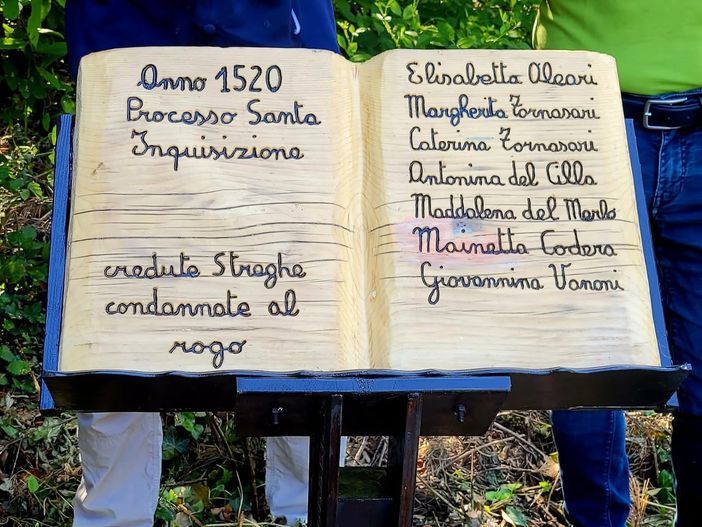 Anno 1520
Processo Santa
Inquisizione
credute Streghe
condannate al
rogo
Elisabetta Oleari
Margherita Fornasari
Caterina Fornasari
Antonina del Cilla
Maddalena del Merlo
Mainetta Codera
Giovannina Vanoni